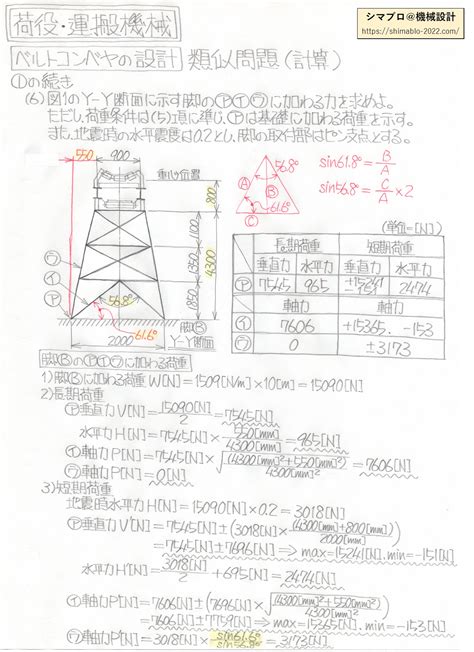 シマブロ@機械設計
https://shimablo-2022.com/
荷役・運搬機械
ベルトコンベヤの設計 類似問題(計算)
①の続き
(6)図1のY-Y断面に示す脚の㋐㋑㋒に加わる力を求めよ。
ただし、荷重条件は(5)項に準じ、㋐は基礎に加わる荷重を示す。
また、地震時の水平震度は0.2とし、脚の取付部はピン支点とする。
550 900 重心位置
800
1100
1350
4300
1850
㋒
㋑
㋐
56.8°
脚Ⓑ
2000 Y-Y断面
61.6°
56.8°
Ⓐ Ⓑ
61.6°
Ⓒ
sin61.8°=B/A
sin56.8°=C/A×2
(単位=[N])
長期荷重 短期荷重
垂直力 水平力 垂直力 水平力
㋐ 7545 965 2474
軸力 軸力
㋑ 7606 +15365. -153
㋒ 0 ±3173
脚Ⓑの㋐㋑㋒に加わる荷重
1)脚Ⓑに加わる荷重W[N]=1509[N/m]×10[m]=15090[N]
2)長期荷重
㋐垂直力V[N]=15090[N]/2=7545[N]
水平力H[N]=7545[N]×550[mm]/4300[mm]=965[N]
㋑軸力P[N]=7545[N]×√(4300[mm]²+550[mm]²)/4300[mm]=7606[N]
㋒軸力P[N]=0[N]
3)短期荷重
地震時水平力H[N]=15090[N]×0.2=3018[N]
㋐垂直力V'[N]=7545[N]±(3018[N]×(4300[mm]+800[mm])/2000[mm])
=7545[N]±7696[N]⇒max=15241[N].min=-151[N]
水平力H'[N]=3018[N]/2+695[N]=2474[N]
㋑軸力P[N]=7606[N]±(7696[N]×√(4300[mm]²+550[mm]²)/4300[mm])
=7606[N]±7759[N]⇒max=15365[N].min=-153[N]
㋒軸力P[N]=3018[N]×sin61.6°/sin56.8°=3173[N]